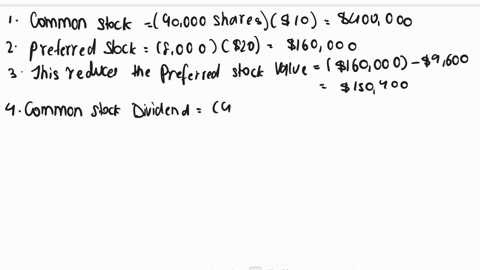 1. Common stock = (40,000 shares) ($10) = $400,000
2. Preferred stock = (8,000) ($20) = $160,000
3. This reduces the Preferred stock Value = ($160,000) - $9,600
= $150,400
4. Common stock Dividend = (4